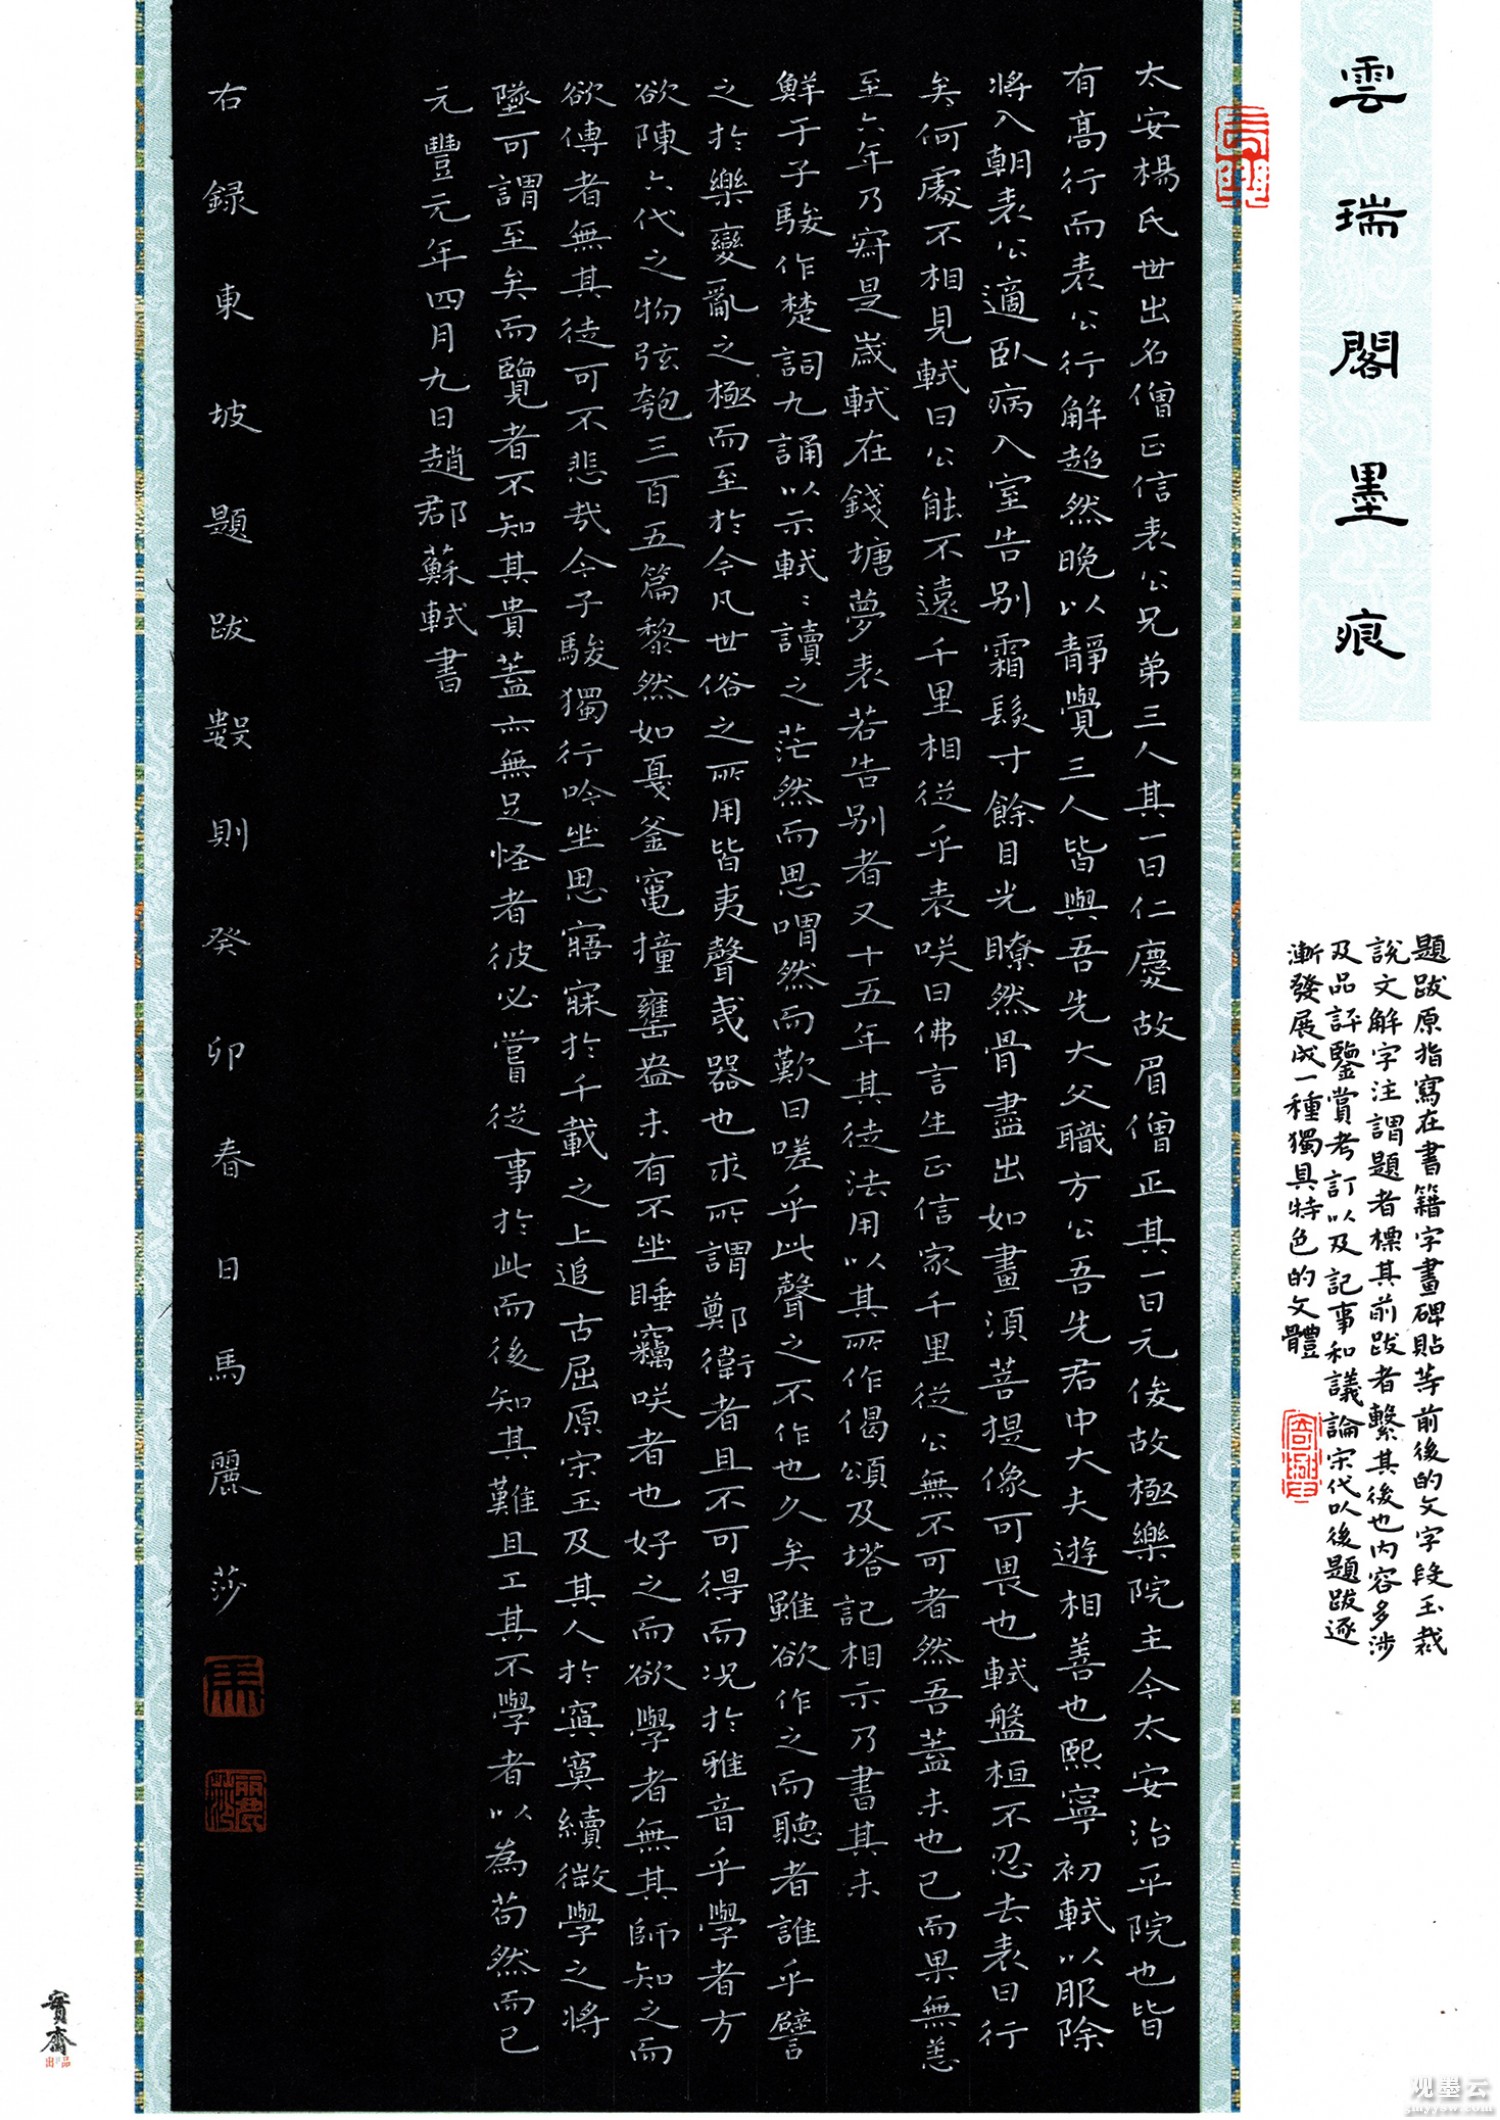 雲瑞閣墨痕
題跋原指寫在書籍字畫碑貼等前後的文字段玉裁
說文解字注謂題者標其前跋者繫其後也內容多涉
及品評鑒賞考訂以及記事和議論宋代以後題跋逐
漸發展成一種獨具特色的文體
太安楊氏世出名僧正信表公兄弟三人其一曰仁慶故眉僧正其一曰元俊故極樂院主今太安治平院也皆
有高行而表公行解超然晚以靜覺三人皆與吾先大父職方公吾先君中大夫遊相善也熙寧初軾以服除
將入朝表公適臥病入室告別霜髮寸餘目光瞭然骨盡出如畫須菩提像可畏也軾盤桓不忍去表曰行
矣何處不相見軾曰公能不遠千里相從乎表咲曰佛言生正信家千里從公無不可者然吾蓋未也已而果無恙
至六年乃寂是歲軾在錢塘夢表若告別者又十五年其徒法用以其所作偈頌及塔記相示乃書其末
鮮于子駿作楚詞九誦以示軾:讀之茫然而思喟然而歎曰嗟乎此聲之不作也久矣雖欲作之而聽者誰乎譬
之於樂變亂之極而至於今凡世俗之所用皆夷聲夷器也求所謂鄭衛者且不可得而况於雅音乎學者方
欲陳六代之物弦匏三百五篇黎然如戛釜竃撞甕盎未有不坐睡竊咲者也好之而欲學者無其師知之而
欲傳者無其徒可不悲哉今子駿獨行吟坐思寤寐於千載之上追古屈原宋玉及其人於冥寞續微學之將
墜可謂至矣而覽者不知其貴蓋亦無足怪者彼必嘗從事於此而後知其難且工其不學者以為苟然而已
元豐元年四月九日趙郡蘇軾書
右録東坡題跋數則癸卯春日馬麗莎
寶齋
出品
观墨云
gmyyow.com